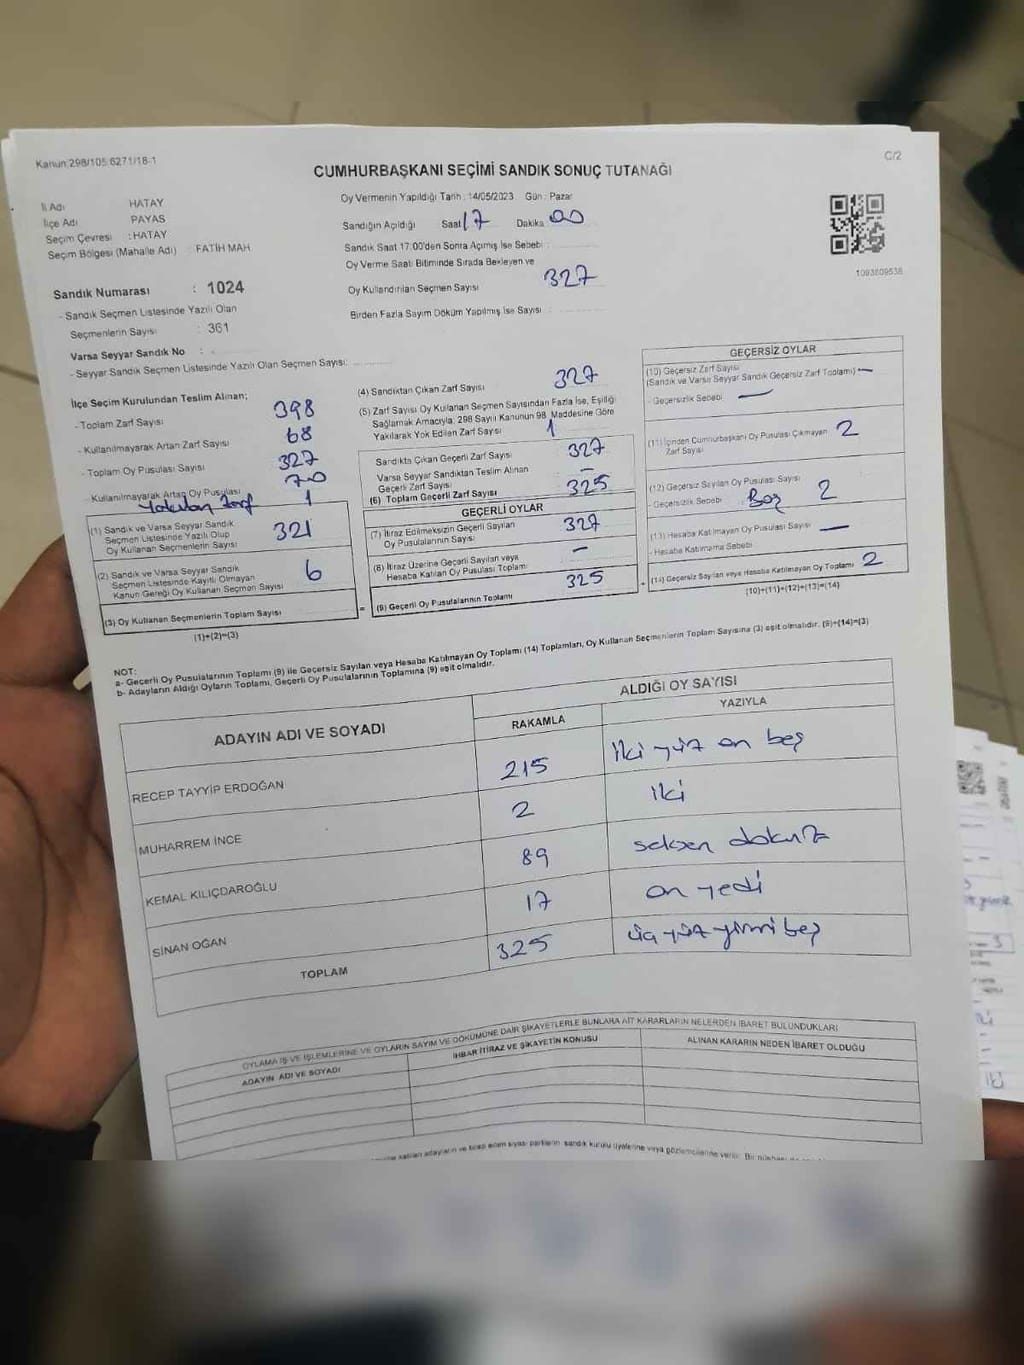 Kanun:298/105:6271/18-1
C/2
CUMHURBAŞKANI SEÇİMİ SANDIK SONUÇ TUTANAĞI
İl Adı HATAY
İlçe Adı PAYAS
Seçim Çevresi : HATAY
Seçim Bölgesi (Mahalle Adı) : FATİH MAH
Oy Vermenin Yapıldığı Tarih : 14/05/2023 Gün : Pazar
Sandığın Açıldığı Saat 17 Dakika 00
Sandık Saat 17:00'den Sonra Açımış İse Sebebi :
Oy Verme Saati Bitiminde Sırada Bekleyen ve
Oy Kullandırılan Seçmen Sayısı 327
Birden Fazla Sayım Döküm Yapılmış İse Sayısı :
1093809538
Sandık Numarası : 1024
- Sandık Seçmen Listesinde Yazılı Olan
Seçmenlerin Sayısı : 361
Varsa Seyyar Sandık No :
- Seyyar Sandık Seçmen Listesinde Yazılı Olan Seçmen Sayısı:
İlçe Seçim Kurulundan Teslim Alınan;
- Toplam Zarf Sayısı 398
- Kullanılmayarak Artan Zarf Sayısı 68
- Toplam Oy Pusulası Sayısı 327
- Kullanılmayarak Artan Oy Pusulası 70
Yakılan Zarf 1
(1) Sandık ve Varsa Seyyar Sandık
Seçmen Listesinde Yazılı Olup
Oy Kullanan Seçmenlerin Sayısı 321
(2) Sandık ve Varsa Seyyar Sandık
Seçmen Listesinde Kayıtlı Olmayan
Kanun Gereği Oy Kullanan Seçmen Sayısı 6
(3) Oy Kullanan Seçmenlerin Toplam Sayısı
(1)+(2)=(3)
(4) Sandıktan Çıkan Zarf Sayısı 327
(5) Zarf Sayısı Oy Kullanan Seçmen Sayısından Fazla İse, Eşitliği
Sağlamak Amacıyla, 298 Sayılı Kanunun 98. Maddesine Göre
Yakılarak Yok Edilen Zarf Sayısı 1
Sandıkta Çıkan Geçerli Zarf Sayısı 327
Varsa Seyyar Sandıktan Teslim Alınan
Geçerli Zarf Sayısı –
(6) Toplam Geçerli Zarf Sayısı 325
GEÇERLİ OYLAR
(7) İtiraz Edilmeksizin Geçerli Sayılan
Oy Pusulalarının Sayısı 327
(8) İtiraz Üzerine Geçerli Sayılan veya
Hesaba Katılan Oy Pusulası Toplamı –
= (9) Geçerli Oy Pusulalarının Toplamı 325
GEÇERSİZ OYLAR
(10) Geçersiz Zarf Sayısı
(Sandık ve Varsa Seyyar Sandık Geçersiz Zarf Toplamı) —
- Geçersizlik Sebebi —
(11) İçinden Cumhurbaşkanı Oy Pusulası Çıkmayan
Zarf Sayısı 2
(12) Geçersiz Sayılan Oy Pusulası Sayısı
- Geçersizlik Sebebi Boş 2
(13) Hesaba Katılmayan Oy Pusulası Sayısı —
- Hesaba Katılmama Sebebi
+ (14) Geçersiz Sayılan veya Hesaba Katılmayan Oy Toplamı 2
(10)+(11)+(12)+(13)=(14)
NOT:
a- Geçerli Oy Pusulalarının Toplamı (9) ile Geçersiz Sayılan veya Hesaba Katılmayan Oy Toplamı (14) Toplamları, Oy Kullanan Seçmenlerin Toplam Sayısına (3) eşit olmalıdır. (9)+(14)=(3)
b- Adayların Aldığı Oyların Toplamı, Geçerli Oy Pusulalarının Toplamına (9) eşit olmalıdır.
ADAYIN ADI VE SOYADI
ALDIĞI OY SAYISI
RAKAMLA YAZIYLA
RECEP TAYYİP ERDOĞAN 215 iki yüz on beş
MUHARREM İNCE 2 iki
KEMAL KILIÇDAROĞLU 89 seksen dokuz
SİNAN OĞAN 17 on yedi
TOPLAM 325 üç yüz yirmi beş
OYLAMA İŞ VE İŞLEMLERİNE VE OYLARIN SAYIM VE DÖKÜMÜNE DAİR ŞİKAYETLERLE BUNLARA AİT KARARLARIN NELERDEN İBARET BULUNDUKLARI
ADAYIN ADI VE SOYADI
İHBAR İTİRAZ VE ŞİKAYETİN KONUSU
ALINAN KARARIN NEDEN İBARET OLDUĞU